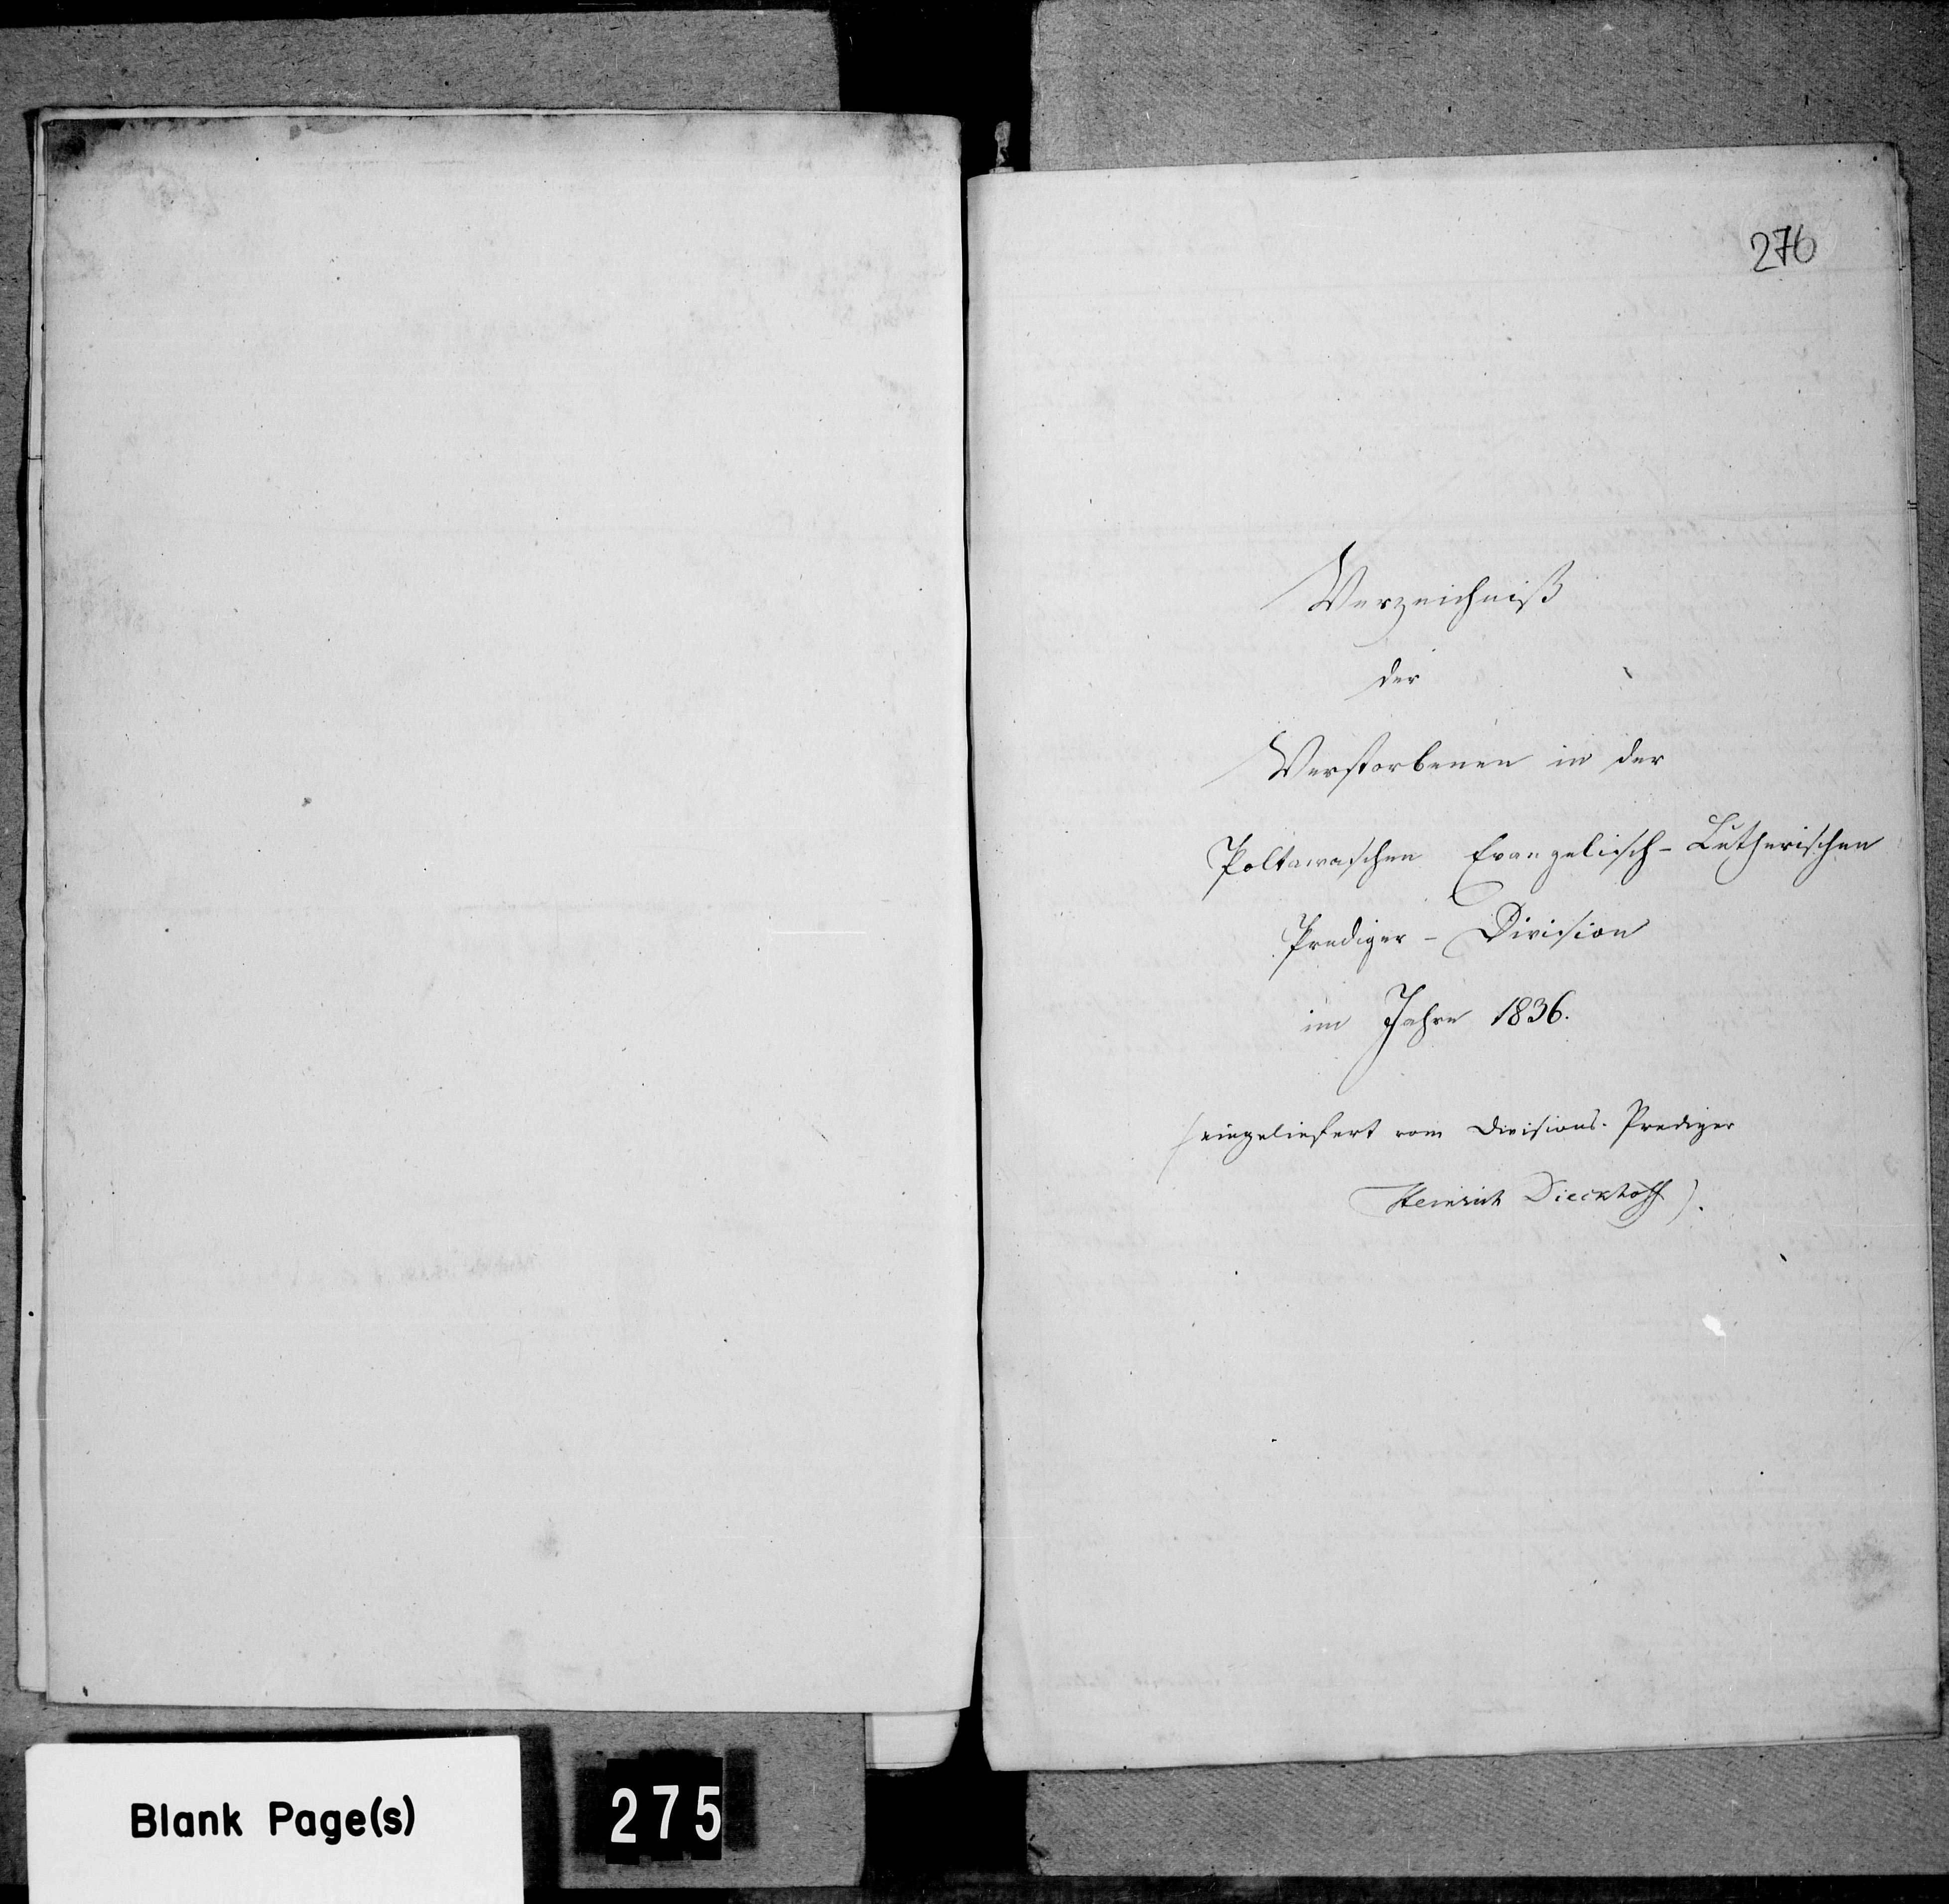 276
Verzeichniß
der
Verstorbenen in der
Poltawaschen Evangelisch-Lutherischen
Prediger - Division
im Jahre 1836.
(eingeliefert vom Divisions-Prediger
Heinrich Dieckhoff).
Blank Page(s)
275